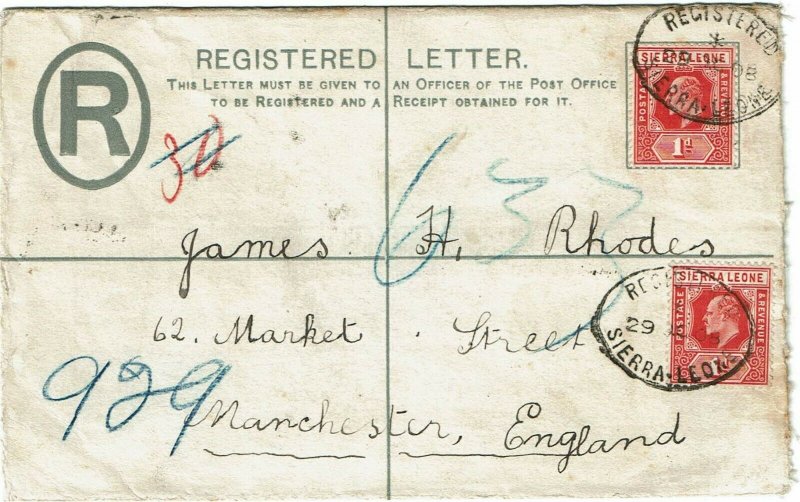 R
REGISTERED LETTER.
THIS LETTER MUST BE GIVEN TO AN OFFICER OF THE POST OFFICE
TO BE REGISTERED AND A RECEIPT OBTAINED FOR IT.
SIERRA LEONE
POSTAGE
& REVENUE
1d
REGISTERED
08
SIERRA-LEONE
30
633
James H, Rhodes
62. Market Street
Manchester, England
929
SIERRA LEONE
POSTAGE
& REVENUE
29
SIERRA-LEONE